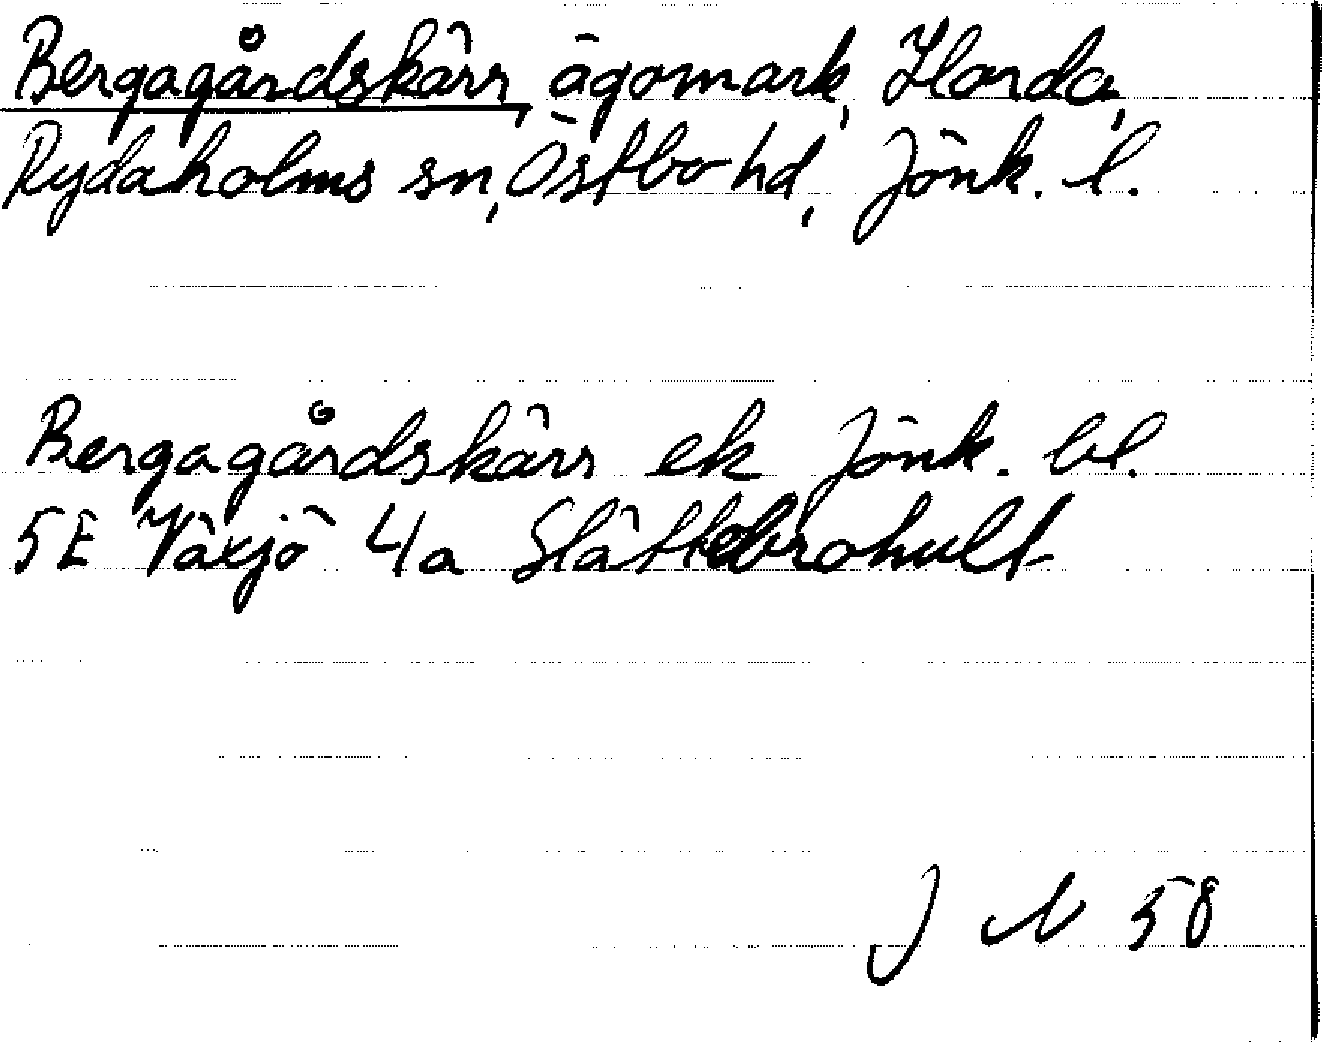 Bergagårdskärr, ägomark, Horda,
Rydaholms sn, Östbo hd, Jönk. l.
Bergagårdskärr ek Jönk. bl.
5E Växjö 4a Slättebrohult
J N 58